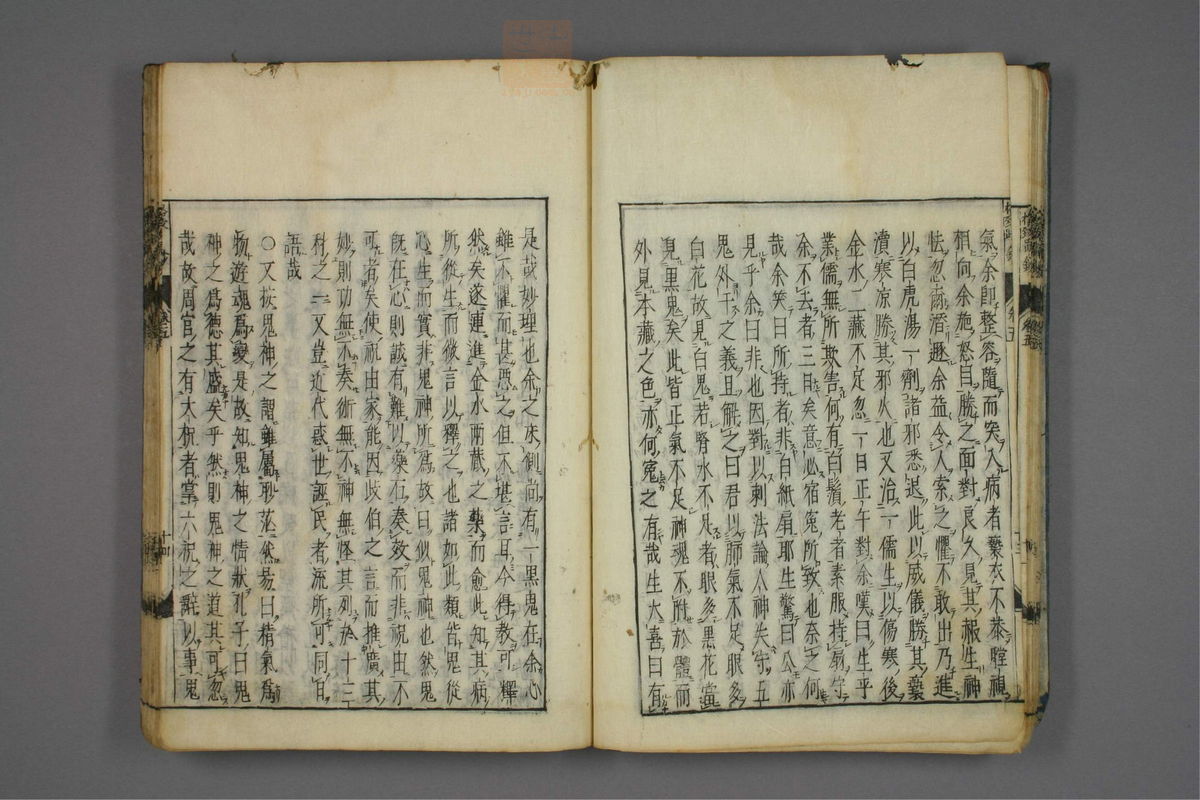 氣余卽整容隨而突入病者褻衣不恭瞠視
相向余施怒目勝之面對良久見其赧生神
怯忽爾潛遯余益令人索之懼不敢出乃進
以白虎湯一劑諸邪悉退此以威儀勝其褻
瀆寒涼勝其邪火也又治一儒生以傷寒後
金水二藏不足忽一日正午對余嘆曰生平
業儒無所欺害何有白鬚老者素服持扇守
余不去者三日矣意必宿冤所致也奈之何
哉余笑曰所持者非白紙扇耶生驚曰公亦
見乎余曰非也因對以刺法論人神失守五
鬼外干之義且解之曰君以肺氣不足眼多
白花故見白鬼若腎水不足者眼多黑花當
見黑鬼矣此皆正氣不足神魂不附於體而
外見本藏之色亦何冤之有哉生大喜曰有
是哉妙理也余之床側尚有一黑鬼在余心
雖不懼而甚惡之但不堪言耳今得敎可釋
然矣遂連進金水兩藏之藥而愈此知其病
所從生而微言以釋之也諸如此類皆鬼從
心生而實非鬼神所爲故曰似鬼神也然鬼
旣在心則誠有難以藥石奏效而非祝由不
可者矣使祝由家能因岐伯之言而推廣其
妙則功無不奏術無不神無怪其列於十三
科之一又豈近代惑世誣民者流所可同日
語哉
○又按鬼神之謂雖屬渺茫然易曰精氣爲
物遊魂爲變是故知鬼神之情狀孔子曰鬼
神之爲德其盛矣乎然則鬼神之道其可忽
哉故周官之有大祝者掌六祝之辭以事鬼